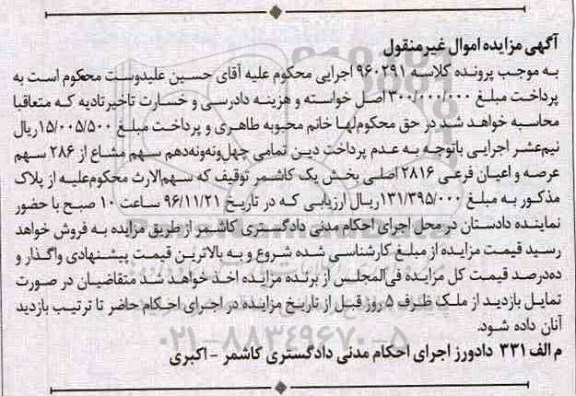 آگهی مزایده اموال غیرمنقول
به موجب پرونده کلاسه ۹۶۰۲۹۱ اجرایی محکوم علیه آقای حسین علیدوست محکوم است به
پرداخت مبلغ ۳۰۰/۰۰۰/۰۰۰ اصل خواسته و هزینه دادرسی و خسارت تاخیر تادیه که متعاقبا
محاسبه خواهد شد در حق محکوم‌لها خانم محبوبه طاهری و پرداخت مبلغ ۱۵/۰۰۵/۵۰۰ ریال
نیم‌عشر اجرایی باتوجه به عدم پرداخت دین تمامی چهل‌ونه‌ونه‌دهم سهم مشاع از ۲۸۶ سهم
عرصه و اعیان فرعی ۲۸۱۶ اصلی بخش یک کاشمر توقیف که سهم‌الارث محکوم‌علیه از پلاک
مذکور به مبلغ ۱۳۱/۳۹۵/۰۰۰ ریال ارزیابی که در تاریخ ۹۶/۱۱/۲۱ ساعت ۱۰ صبح با حضور
نماینده دادستان در محل اجرای احکام مدنی دادگستری کاشمر از طریق مزایده به فروش خواهد
رسید قیمت مزایده از مبلغ کارشناسی شده شروع و به بالاترین قیمت پیشنهادی واگذار و
ده‌درصد قیمت کل مزایده فی‌المجلس از برنده مزایده اخذ خواهد شد متقاضیان در صورت
تمایل بازدید از ملک ظرف ۵ روز قبل از تاریخ مزایده در اجرای احکام حاضر تا ترتیب بازدید
آنان داده شود.
۰۲۱-۸۸۳۴۹۶۷۰-۵
م الف ۳۳۱ دادورز اجرای احکام مدنی دادگستری کاشمر - اکبری